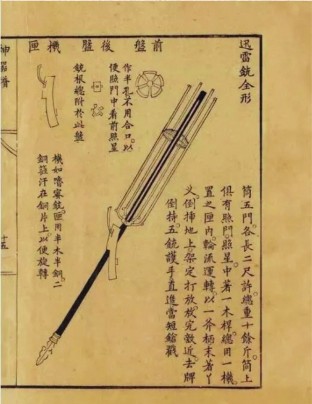 迅雷銃全形
前盤
後盤
機匣
作半孔不用合口以
便照門中看前照星
銃根總附於此盤
機如嚕密銃匣用半木半銅二
銅箍汗在銅片上以便旋轉
筒五門各長二尺許總重十餘斤筒上
俱有照門照星中著一木桿總用一機
置之匣內輪流運轉以一斧柄末著丫
乂倒插地上架定打放放完敵近去牌
倒持五銃護手直進當短鎗戳
神器